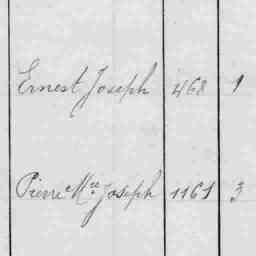 Ernest Joseph 468 1
Pierre Mce Joseph 1161 3